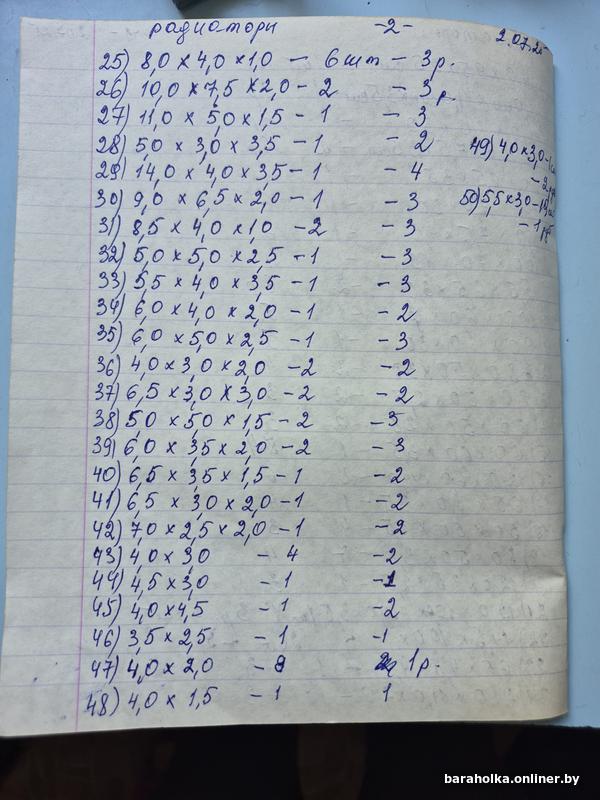 радиаторы -2- 2.07.25
25) 8,0 × 4,0 × 1,0 — 6 шт — 3 р.
26) 10,0 × 7,5 × 2,0 - 2 - 3 р.
27) 11,0 × 5,0 × 1,5 - 1 - 3
28) 5,0 × 3,0 × 3,5 - 1 - 2
29) 14,0 × 4,0 × 3,5 - 1 - 4
30) 9,0 × 6,5 × 2,0 - 1 - 3
31) 8,5 × 4,0 × 1,0 - 2 - 3
32) 5,0 × 5,0 × 2,5 - 1 - 3
33) 5,5 × 4,0 × 3,5 - 1 - 3
34) 6,0 × 4,0 × 2,0 - 1 - 2
35) 6,0 × 5,0 × 2,5 - 1 - 3
36) 4,0 × 3,0 × 2,0 - 2 - 2
37) 6,5 × 3,0 × 3,0 - 2 - 2
38) 5,0 × 5,0 × 1,5 - 2 - 3
39) 6,0 × 3,5 × 2,0 - 2 - 3
40) 6,5 × 3,5 × 1,5 - 1 - 2
41) 6,5 × 3,0 × 2,0 - 1 - 2
42) 7,0 × 2,5 × 2,0 - 1 - 2
43) 4,0 × 3,0 - 4 - 2
44) 4,5 × 3,0 - 1 - 1
45) 4,0 × 4,5 - 1 - 2
46) 3,5 × 2,5 - 1 - 1
47) 4,0 × 2,0 - 8 1 р.
48) 4,0 × 1,5 - 1 1
49) 4,0 × 3,0 - 1
- 2
50) 5,5 × 3,0
- 1
baraholka.onliner.by